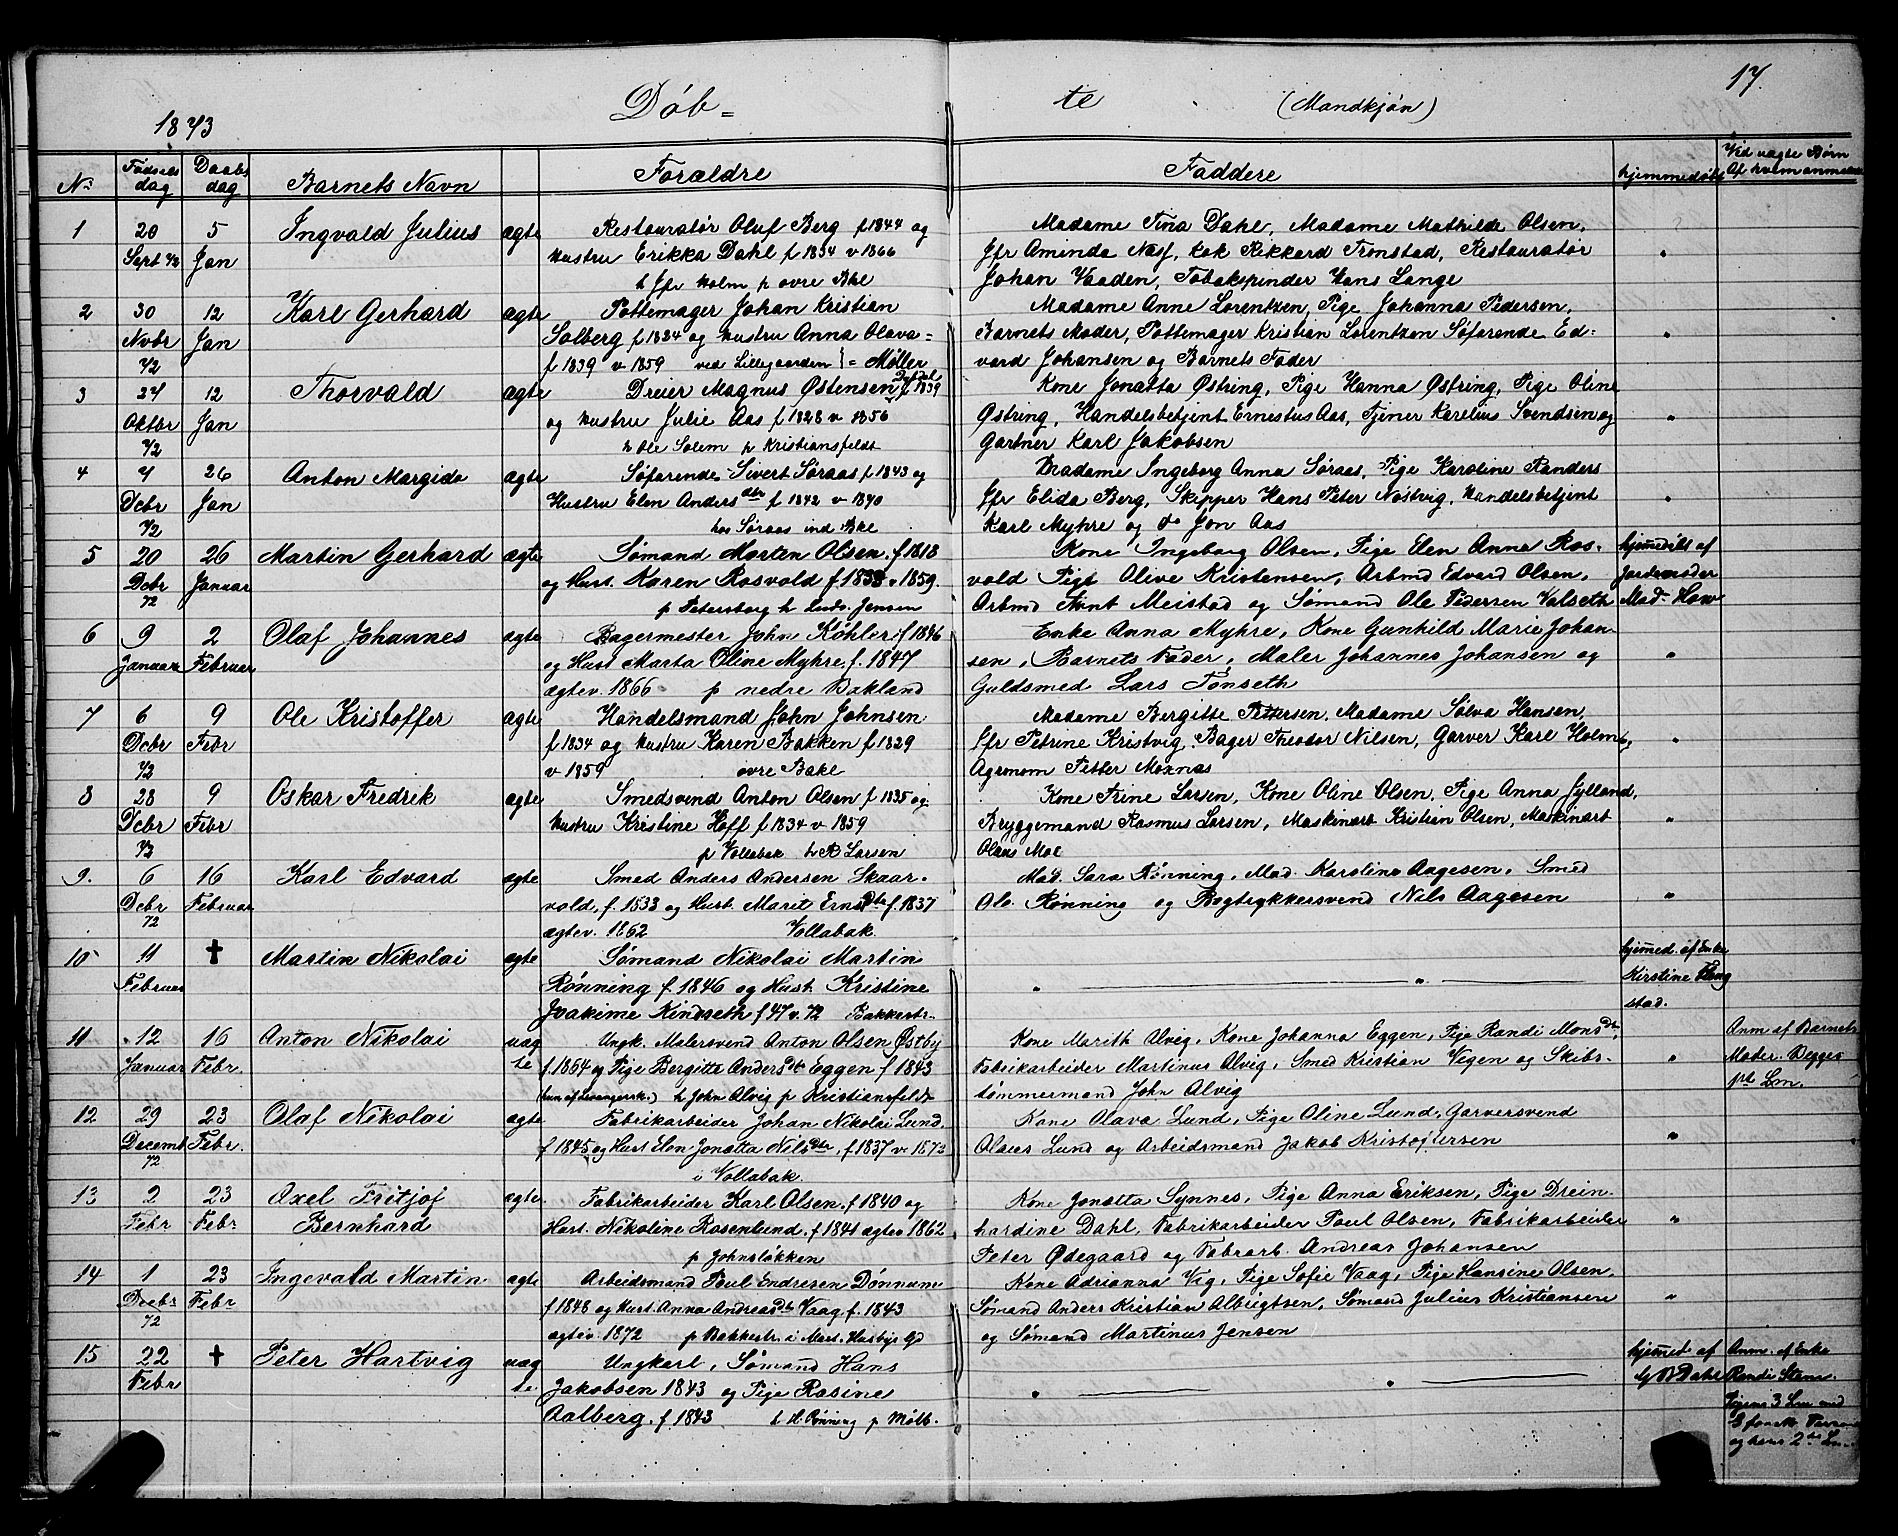 17.
Döb= te (Mandkjön)
1873
No Födsels dag Daabs dag Barnets Navn Forældre Faddere hjemmedöbt Ved uægte Börn
Af hvem anmeldt
1 20 5 Ingvald Julius ægte Restauratör Oluf Berg f 1844 og Madame Tina Dahl, Madame Mathilde Olsen,
Sept 72 Jan Hustru Erikka Dahl f 1834 v 1866 Jfr Aminda Næss, Kok Rikkard Tronstad, Restauratör "
h Jfr Holm p övre Bkl Johan Vaaden, Tobakspinder Hans Lange
2 30 12 Karl Gerhard ægte Pottemager Johan Kristian Madame Anne Lorentzen, Pige Johanna Pedersen,
Novbr Jan Solberg f 1834 og Hustru Anna Olava = Barnets Moder, Pottemager Kristian Lorentzen Söfarende Ed= "
72 f 1839 v 1859 ved Lillegaarden } = Møller vard Johansen og Barnets Fader
3 24 12 Thorvald ægte Dreier Magnus Østensen f 1839 Kone Jonetta Østring, Pige Hanna Østring, Pige Oline
Oktbr Jan og Hustru Julie Aas f 1828 v 1856 Østring, Handelsbetjent Ernestus Aas, Tjener Karelius Svendsen og "
72 h Ole Solem p Kristiansfeldt Gartner Karl Jakobsen
4 4 26 Anton Margido ægte Söfarende Sivert Söraas f 1843 og Madame Ingeborg Anna Söraas, Pige Karoline Randers
Dcbr Jan Hustru Elen Anders dtr f 1842 v 1870 Jfr Elida Berg, Skipper Hans Peter Nöstvig, Handelsbetjent "
72 hos Söraas ind Bkl Karl Myhre og do Jon Aas
5 20 26 Martin Gerhard ægte Sømand Morten Olsen f. 1818 Kone Ingeborg Olsen, Pige Elen Anna Ros- hjemmedöbt af
Dcbr Januar og Hust. Karen Rosvold f. 1838 v 1859. vold Pige Olive Kristensen, Arbmd Edvard Olsen, Jordemoder
72 p Petersborg h Ludv. Jensen Arbmd Arnt Meistad og Sømand Ole Pedersen Valseth Mad. How
6 9 2 Olaf Johannes ægte Bagermester John Köhler f 1846 Enke Anna Myhre, Kone Gunhild Marie Johan-
Januar Februar og Hust Marta Oline Myhre f. 1847 sen, Barnets Fader, Maler Johannes Johansen og "
ægtev. 1866 p nedre Bakland Guldsmed Lars Tønseth
7 6 9 Ole Kristoffer ægte Handelsmand John Johnsen Madame Bergitte Pettersen, Madame Sølva Hansen,
Dcbr Febr f 1834 og Hustru Karen Bakken f 1829 Jfr Petrine Kristvig, Bager Theodor Nilsen, Garver Karl Holm, "
72 v 1859 övre Bakl Agronom Petter Moxnæs
8 28 9 Oskar Fredrik ægte Smedsvend Anton Olsen f 1835 og Kone Trine Larsen, Kone Oline Olsen, Pige Anna Jylland,
Dcbr Febr Hustru Kristine Hoff f 1834 v 1859 Bryggemand Rasmus Larsen, Maskinarb Kristian Olsen, Maskinarb "
72 p Vollabak h R Larsen Olaus Moe
9. 6 16 Karl Edvard ægte Smed Anders Andersen Skaar- Mad. Sara Rønning, Mad. Karoline Aagesen, Smed
Dcbr Februar vold, f. 1833 og Hust. Marit Ernst Dtr f. 1837 Ole Rønning og Bogtrykkersvend Nils Aagesen "
72 ægtev. 1862 Vollabak.
10 11 ✝ Martin Nikolai ægte Sømand Nikolai Martin hjemmed. af Enke
Februar Rønning f. 1846 og Hust. Kristine " " Kirstine
Joakime Kindseth f 47 v. 72 Bakkestr. stad.
11 12 16 Anton Nikolai uæg Ungk. Malersvend Anton Olsen Østby Kone Marith Alvig, Kone Johanna Eggen, Pige Randi Mons Dtr, Anm af Barnets
Januar Febr. te f. 1854 og Pige Bergitte Anders Dtr Eggen f 1843 Fabrikarbeider Martinus Alvig, Smed Kristian Vegen og Skibs- " Moder. Begges
(hun af Levangersk.) h John Alvig p Kristiansfeldt tømmermand John Alvig 1ste Lm.
12 29 23 Olaf Nikolai ægte Fabrikarbeider Johan Nikolai Lund, Kone Olava Lund, Pige Oline Lund, Garversvend
Decemb Febr. f 1845 og Hust Elen Jonetta Nils Dtr, f. 1837 v. 1872 Olaus Lund og Arbeidsmand Jakob Kristoffersen "
72 i Vollabak.
13 2 23 Axel Fritjof ægte. Fabrikarbeider Karl Olsen, f 1840 og Kone Jonetta Synnes, Pige Anna Eriksen, Pige Drein-
Febr Febr Bernhard Hust. Nikoline Rosenlund, f 1841 ægtev 1862 hardine Dahl, Fabrikarbeider Poul Olsen, Fabrikarbeider "
p Johnsløkken Peter Ødegaard og Fabrarb. Andreas Johansen
14 1 23 Ingevald Martin ægte Arbeidsmand Poul Endresen Dønnem Kone Adrianna Vig, Pige Sofie Vaag, Pige Hansine Olsen.
Decbr Febr f 1848 og Hust. Anna Andreas Dtr Vaag f. 1843 Sømand Anders Kristian Albrigtsen, Sømand Julius Kristiansen "
72 ægtev. 1872 p Bakkestr. i Mart. Husbys Gd og Sømand Martinus Jensen
15 22 ✝ Peter Hartvig uæg Ungkarl, Sømand Hans hjemmed af Anm. af Enke
Febr te. Jakobsen 1843 og Pige Rasine " " Dahl Randi
Aalberg. f. 1843 h. H. Rønning p Møllb. 3 Lm med
og hans 2de Lm